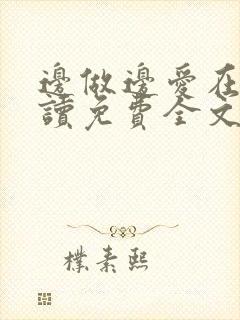 邊做邊愛在
讀免費全文
樸素熙